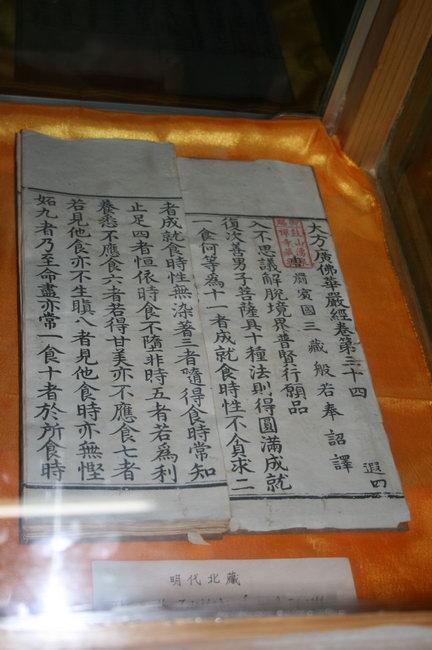 大方廣佛華嚴經卷第三十四 遐四
唐罽賓國三藏般若奉 詔譯
入不思議解脫境界普賢行願品
復次善男子菩薩具十種法則得圓滿成就
一食何等爲十一者成就食時性不貪求二
者成就食時性無染著三者隨得食時常知
止足四者恒依時食不隨非時五者若爲利
養悉不應食六者若得甘美亦不應食七者
若見他食亦不生瞋八者見他食時亦無慳
妬九者乃至命盡亦常一食十者於所食時
明代北藏